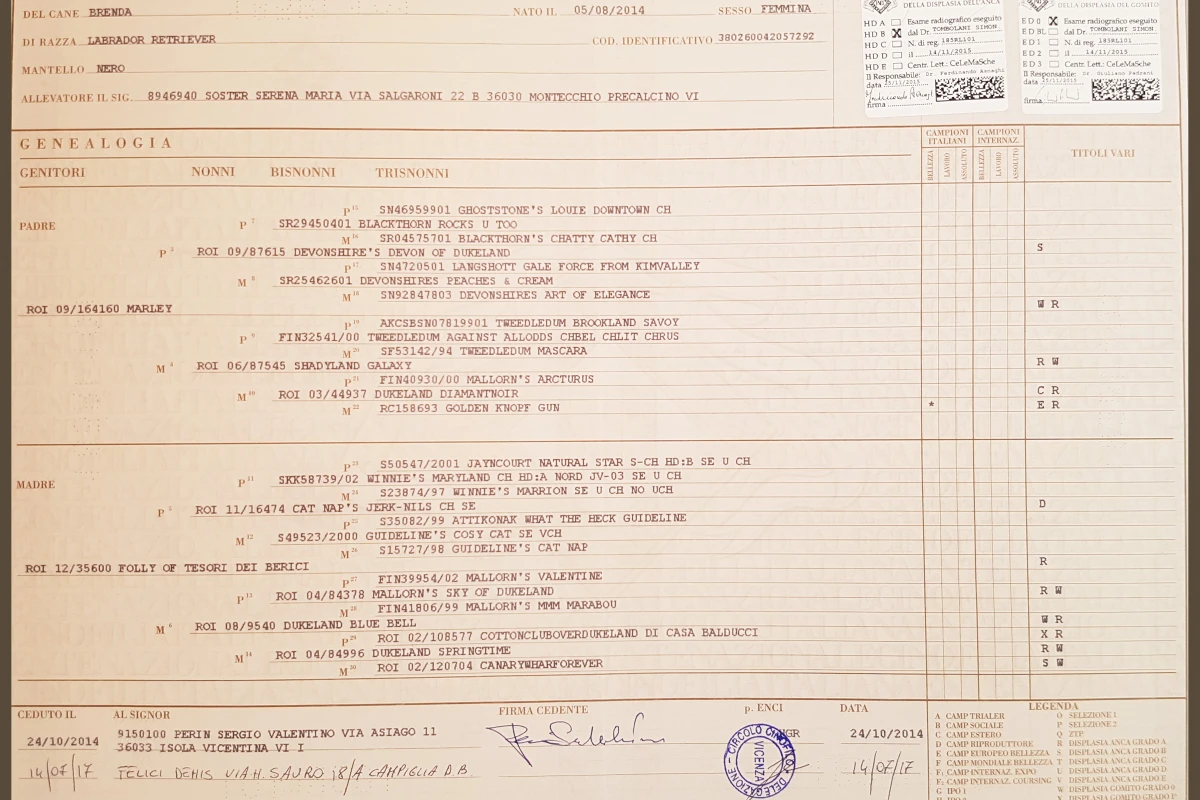 DEL CANE BRENDA NATO IL 05/08/2014 SESSO FEMMINA
DI RAZZA LABRADOR RETRIEVER COD. IDENTIFICATIVO 380260042057292
MANTELLO NERO
ALLEVATORE IL SIG. 8946940 SOSTER SERENA MARIA VIA SALGARONI 22 B 36030 MONTECCHIO PRECALCINO VI
DELLA DISPLASIA DELL'ANCA
HD A Esame radiografico eseguito
HD B X dal Dr. TOMBOLANI SIMON
HD C N. di reg. 185RL101
HD D il 14/11/2015
HD E Centr. Lett.: CeLeMaSche
Il Responsabile: Dr. Ferdinando Asnaghi
data 25/11/2015
firma
DELLA DISPLASIA DEL GOMITO
ED 0 X Esame radiografico eseguito
ED BL dal Dr. TOMBOLANI SIMON
ED 1 N. di reg. 185RL101
ED 2 il 14/11/2015
ED 3 Centr. Lett.: CeLeMaSche
Il Responsabile: Dr. Giuliano Pedrani
data 25/11/2015
firma
GENEALOGIA
CAMPIONI ITALIANI
CAMPIONI INTERNAZ.
TITOLI VARI
BELLEZZA LAVORO ASSOLUTO BELLEZZA LAVORO ASSOLUTO
GENITORI NONNI BISNONNI TRISNONNI
P 15 SN46959901 GHOSTSTONE'S LOUIE DOWNTOWN CH
PADRE P 7 SR29450401 BLACKTHORN ROCKS U TOO
M 16 SR04575701 BLACKTHORN'S CHATTY CATHY CH
P 3 ROI 09/87615 DEVONSHIRE'S DEVON OF DUKELAND S
P 17 SN4720501 LANGSHOTT GALE FORCE FROM KIMVALLEY
M 8 SR25462601 DEVONSHIRES PEACHES & CREAM
M 18 SN92847803 DEVONSHIRES ART OF ELEGANCE
ROI 09/164160 MARLEY W R
P 19 AKCSBSN07819901 TWEEDLEDUM BROOKLAND SAVOY
P 9 FIN32541/00 TWEEDLEDUM AGAINST ALLODDS CHBEL CHLIT CHRUS
M 20 SF53142/94 TWEEDLEDUM MASCARA
M 4 ROI 06/87545 SHADYLAND GALAXY R W
P 21 FIN40930/00 MALLORN'S ARCTURUS
M 10 ROI 03/44937 DUKELAND DIAMANTNOIR C R
M 22 RC158693 GOLDEN KNOPF GUN * E R
P 23 S50547/2001 JAYNCOURT NATURAL STAR S-CH HD:B SE U CH
MADRE P 11 SKK58739/02 WINNIE'S MARYLAND CH HD:A NORD JV-03 SE U CH
M 24 S23874/97 WINNIE'S MARRION SE U CH NO UCH
P 5 ROI 11/16474 CAT NAP'S JERK-NILS CH SE D
P 25 S35082/99 ATTIKONAK WHAT THE HECK GUIDELINE
M 12 S49523/2000 GUIDELINE'S COSY CAT SE VCH
M 26 S15727/98 GUIDELINE'S CAT NAP
ROI 12/35600 FOLLY OF TESORI DEI BERICI R
P 27 FIN39954/02 MALLORN'S VALENTINE
P 13 ROI 04/84378 MALLORN'S SKY OF DUKELAND R W
M 28 FIN41806/99 MALLORN'S MMM MARABOU
M 6 ROI 08/9540 DUKELAND BLUE BELL W R
P 29 ROI 02/108577 COTTONCLUBOVERDUKELAND DI CASA BALDUCCI X R
M 14 ROI 04/84996 DUKELAND SPRINGTIME R W
M 30 ROI 02/120704 CANARYWHARFOREVER S W
CEDUTO IL AL SIGNOR FIRMA CEDENTE p. ENCI DATA
24/10/2014 9150100 PERIN SERGIO VALENTINO VIA ASIAGO 11 24/10/2014
36033 ISOLA VICENTINA VI I
14/07/17 FELICI DENIS VIA H. SAURO 18/A CAMPIGLIA D.B. 14/07/17
CIRCOLO CINOFILO
VICENZA
DELEGAZIONE
LEGENDA
A CAMP TRIALER
B CAMP SOCIALE
C CAMP ESTERO
D CAMP RIPRODUTTORE
E CAMP EUROPEO BELLEZZA
F CAMP MONDIALE BELLEZZA
F1 CAMP INTERNAZ. EXPO
F2 CAMP INTERNAZ. COURSING
G IPO 1
O SELEZIONE 1
P SELEZIONE 2
Q ZTP
R DISPLASIA ANCA GRADO A
S DISPLASIA ANCA GRADO B
T DISPLASIA ANCA GRADO C
U DISPLASIA ANCA GRADO D
V DISPLASIA ANCA GRADO E
W DISPLASIA GOMITO GRADO 0